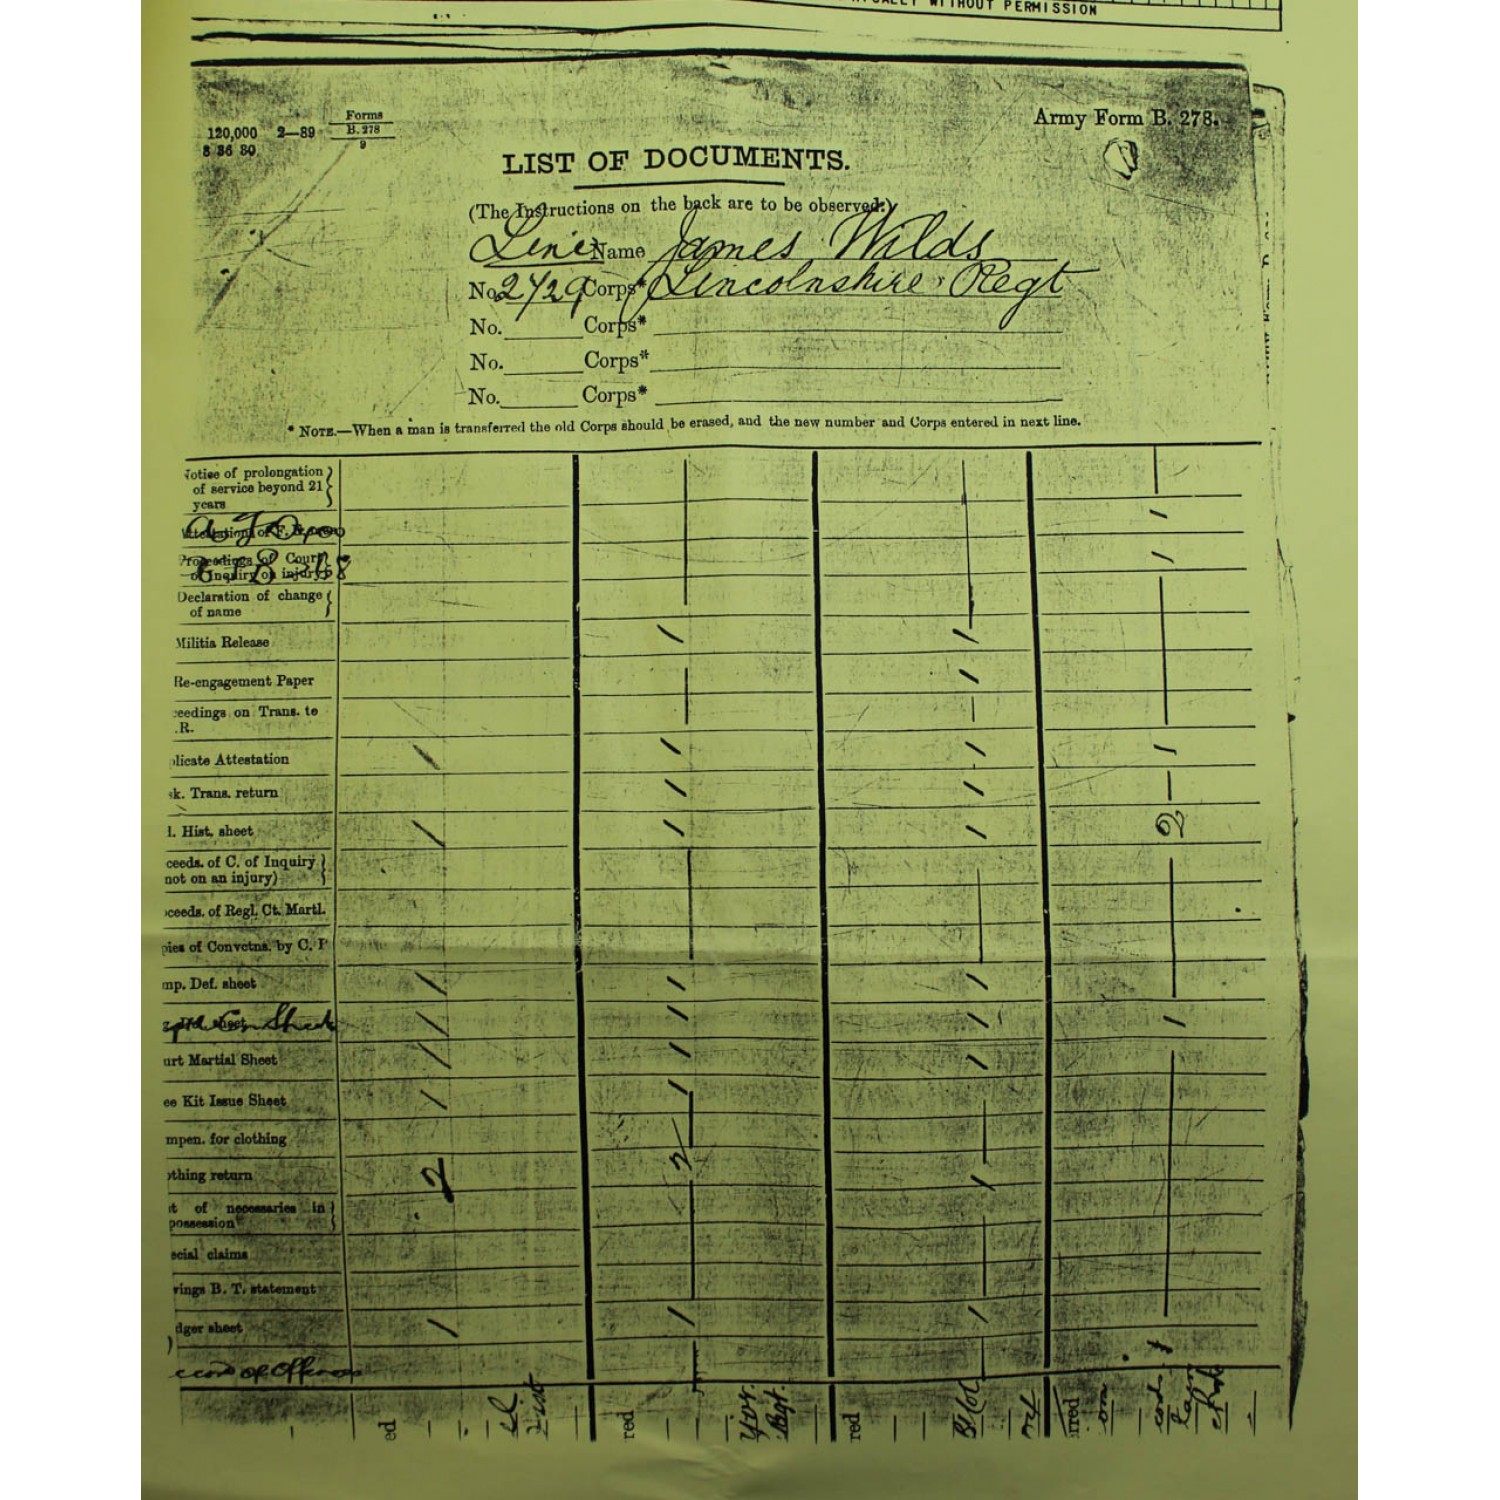 WITHOUT PERMISSION
120,000 2—89 Forms B. 278 9
8 36 80
Army Form B. 278.
LIST OF DOCUMENTS.
(The Instructions on the back are to be observed.)
Line Name James Wilds
No. 2729 Corps* Lincolnshire Regt
No. Corps*
No. Corps*
No. Corps*
* NOTE.—When a man is transferred the old Corps should be erased, and the new number and Corps entered in next line.
otice of prolongation
of service beyond 21
years
Proceedings of Court
of Inquiry on injury
Declaration of change
of name
Militia Release 1 1
Re-engagement Paper 1
eedings on Trans. to
.R.
licate Attestation 1 1 1 1
k. Trans. return 1 1
l. Hist. sheet 1 1 1 2
ceeds. of C. of Inquiry
not on an injury)
ceeds. of Regl. Ct. Martl.
pies of Convctns. by C. P
mp. Def. sheet 1 1 1
sheet 1 1 1 1
urt Martial Sheet 1 1 1
ee Kit Issue Sheet 1 1
mpen. for clothing
thing return 2 2 1
t of necessaries in
possession
ecial claims
vings B. T. statement
dger sheet 1 1 1
of Offences
ed
red
Regt.
red
rred